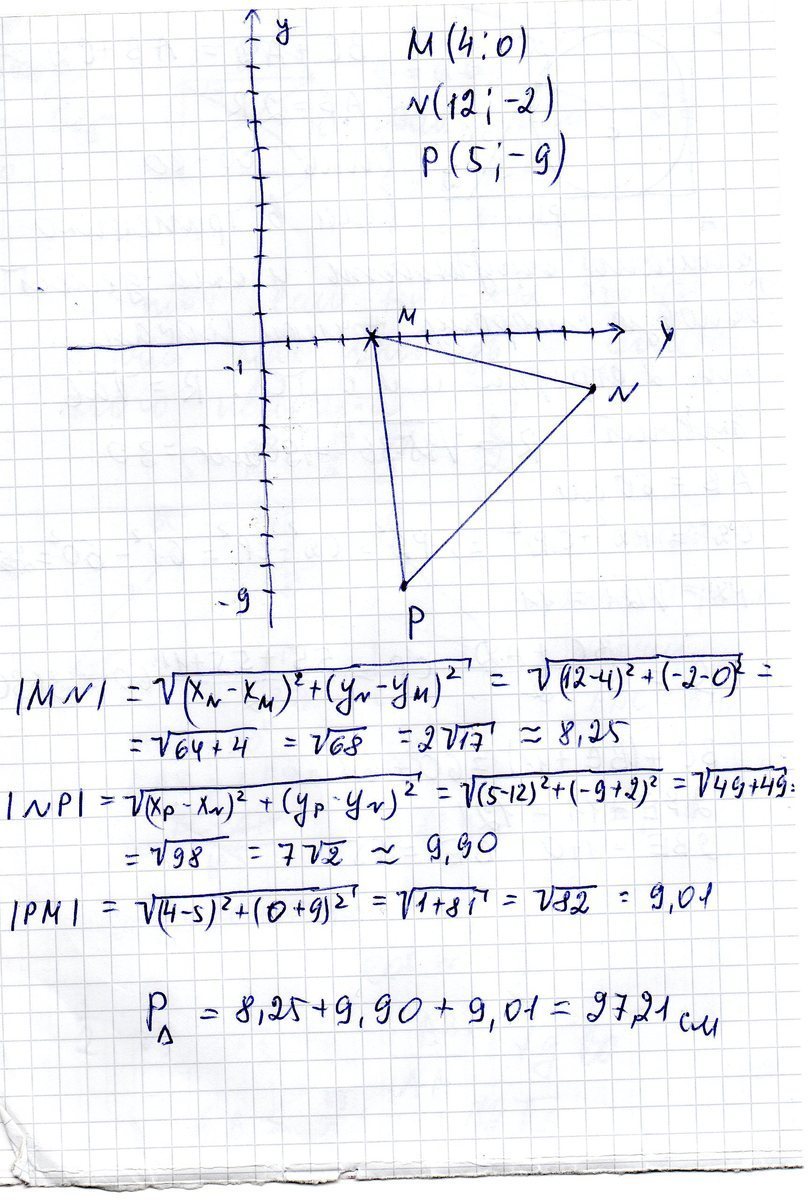 y
M(4;0)
N(12;-2)
P(5;-9)
M
y
-1
N
-9
P
|MN| = √(x_N - x_M)² + (y_N - y_M)² = √(12-4)² + (-2-0)² =
= √64+4 = √68 = 2√17 ≈ 8,25
|NP| = √(x_P - x_N)² + (y_P - y_N)² = √(5-12)² + (-9+2)² = √49+49 =
= √98 = 7√2 ≈ 9,90
|PM| = √(4-5)² + (0+9)² = √1+81 = √82 = 9,01
P_Δ = 8,25+9,90+9,01 = 27,21 см